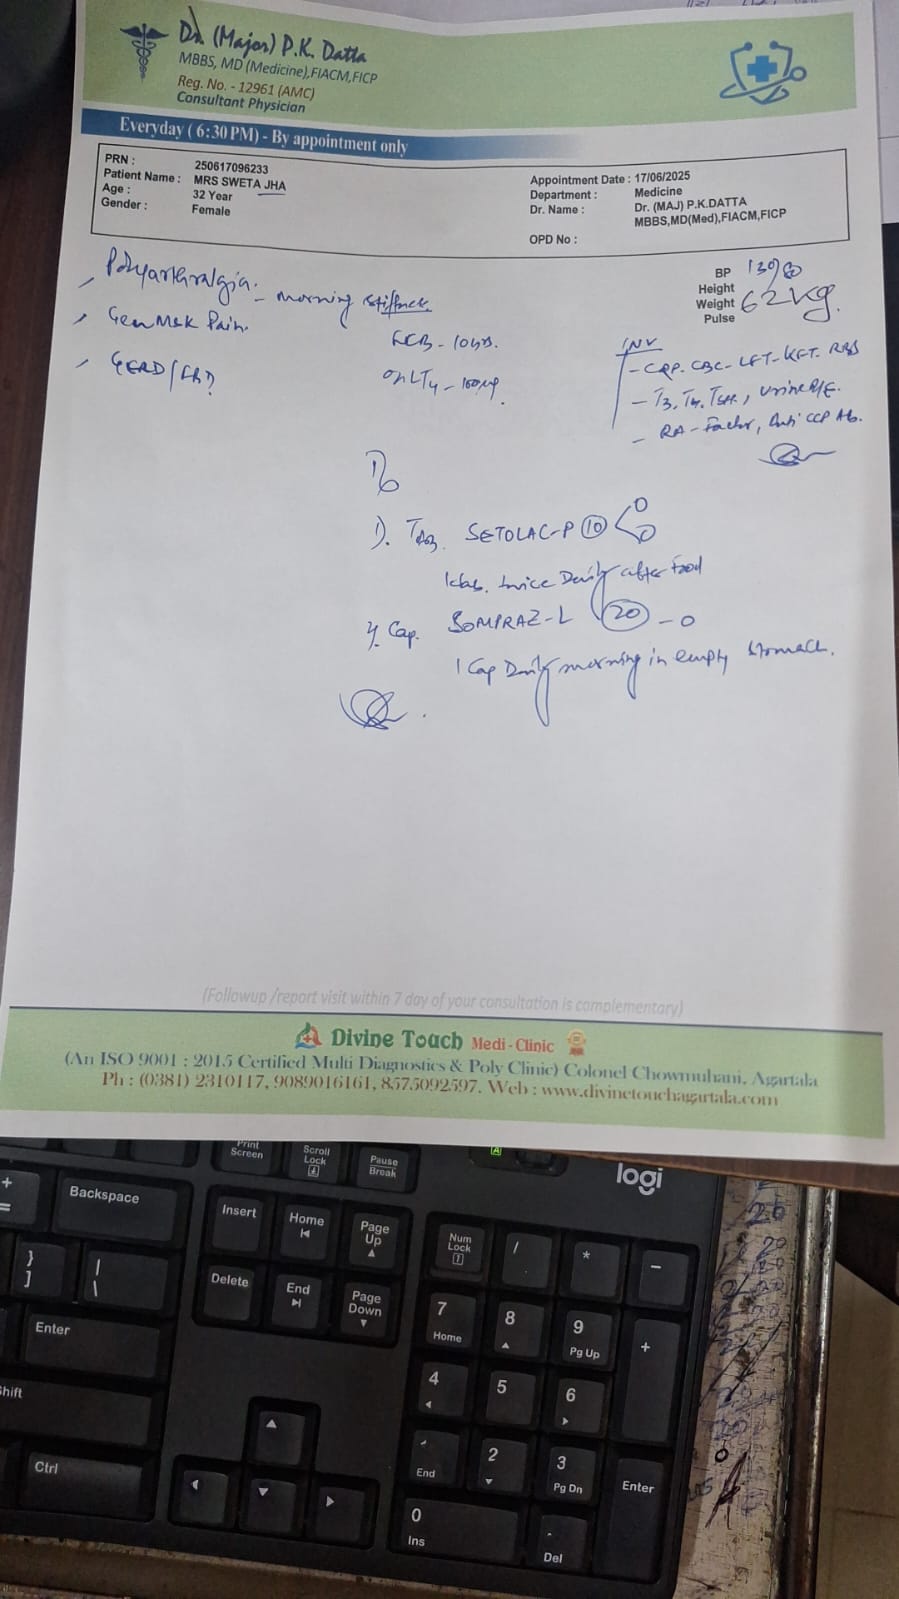 Dr. (Major) P.K. Datta
MBBS, MD (Medicine),FIACM,FICP
Reg. No. - 12961 (AMC)
Consultant Physician
Everyday ( 6:30 PM) - By appointment only
PRN : 250617096233
Patient Name : MRS SWETA JHA
Age : 32 Year
Gender : Female
Appointment Date : 17/06/2025
Department : Medicine
Dr. Name : Dr. (MAJ) P.K.DATTA
MBBS,MD(Med),FIACM,FICP
OPD No :
Polyarthralgia. - morning stiffness
Gen MSK Pain.
GERD/
LCB - 
on LT4 - 100µg
BP 130/80
Height
Weight 62 kg.
Pulse
INV
- CRP. CBC- LFT- KFT. RBS
- T3, T4, TSH., Urine R/E.
- RA - Factor, Anti CCP Ab.
1). Tab. SETOLAC-P (10)
1 tab. twice Daily after food
2). Cap. SOMPRAZ-L (20) - 0
1 Cap Daily morning in empty stomach.
(Followup /report visit within 7 day of your consultation is complementary)
Divine Touch Medi - Clinic
(An ISO 9001 : 2015 Certified Multi Diagnostics & Poly Clinic) Colonel Chowmuhani, Agartala
Ph : (0381) 2310117, 9089016161, 8575092597. Web : www.divinetouchagartala.com
Print Screen
Scroll Lock
Pause Break
logi
Backspace
Insert
Home
Page Up
Num Lock
/
*
-
Delete
End
Page Down
7 Home
8
9 Pg Up
+
Enter
4
5
6
Shift
End
2
3 Pg Dn
Enter
Ctrl
0 Ins
. Del